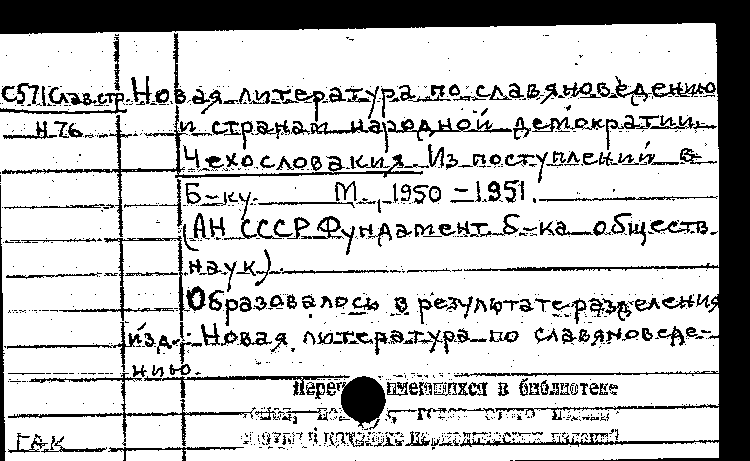 С571Слав.стр. Новая литература по славяноведению
Н76 и странам народной демократии.
Чехословакия. Из поступлений в
Б-ку. М., 1950-1951.
(АН СССР Фундамент. б-ка обществ.
наук).
Образовалось в результате разделения
изд.: Новая литература по славяноведе-
нию.
Перечень имеющихся в библиотеке
этого
в каталоге периодических изданий
ГАК